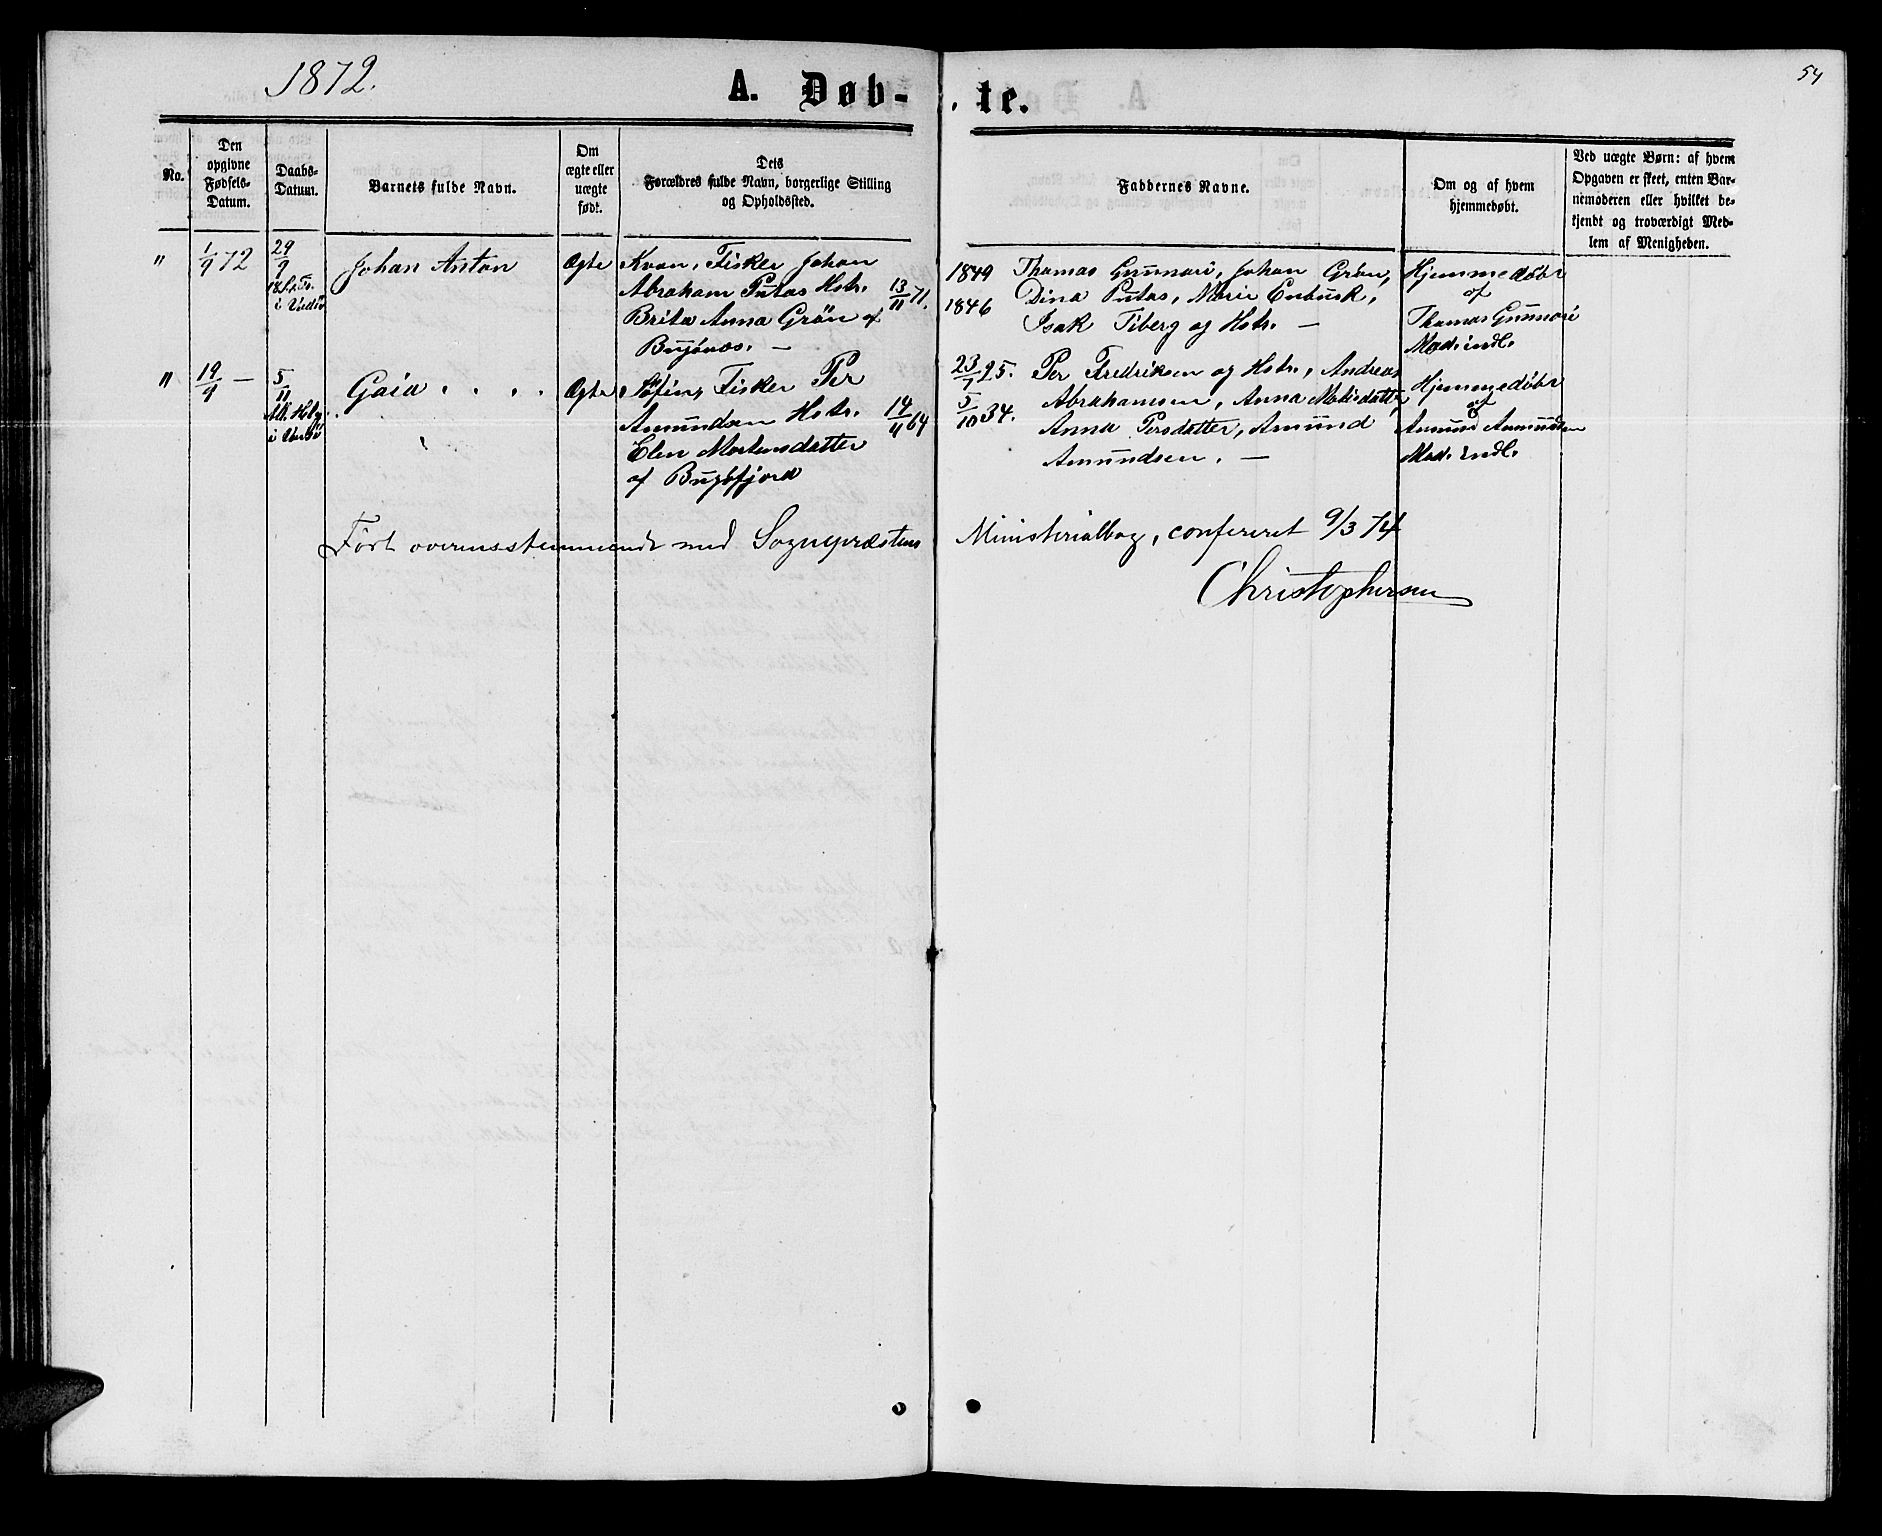 1872.
A. Døb-
te.
54
No.
Den
opgivne
Fødsels-
Datum.
Daabs-
Datum.
Barnets fulde Navn.
Om
ægte eller
uægte
født.
Dets
Forældres fulde Navn, borgerlige Stilling
og Opholdssted.
Faddernes Navne.
Om og af hvem
hjemmedøbt.
Ved uægte Børn: af hvem
Opgaven er skeet, enten Bar-
nemoderen eller hvilket be-
kjendt og troværdigt Med-
lem af Menigheden.
" 1/9 72
29/9
i Vadsø
Johan Anton
Ægte
Kvæn, Fisker Johan
Abraham Putas Hstr. 13/11 71.
Brita Anna Grön af
Bugönæs. —
1849
1846
Thomas Gunnari, Johan Grön,
Dina Putas, Marie Enbusk,
Isak Tiberg og Hstr. —
Hjemmedøbt
af
Thomas Gunnari
Mad. indl.
" 19/9 —
5/11
Alle Helg.
i Vadsø
Gaia . . . .
Ægte
Söfin, Fisker Per
Amundsen Hstr. 14/4 64
Elen Mortensdatter
af Bugöfjord
23/7 25.
5/10 34.
Per Fredriksen og Hstr., Andreas
Abrahamsen, Anna Matisdatter
Anna Persdatter, Amund
Amundsen. —
Hjemmedøbt
af
Amund Amundsen
Mad. indl.
Ført overensstemmende med Sognepræstens
Ministerialbog, confereret 9/3 74
Christophersen